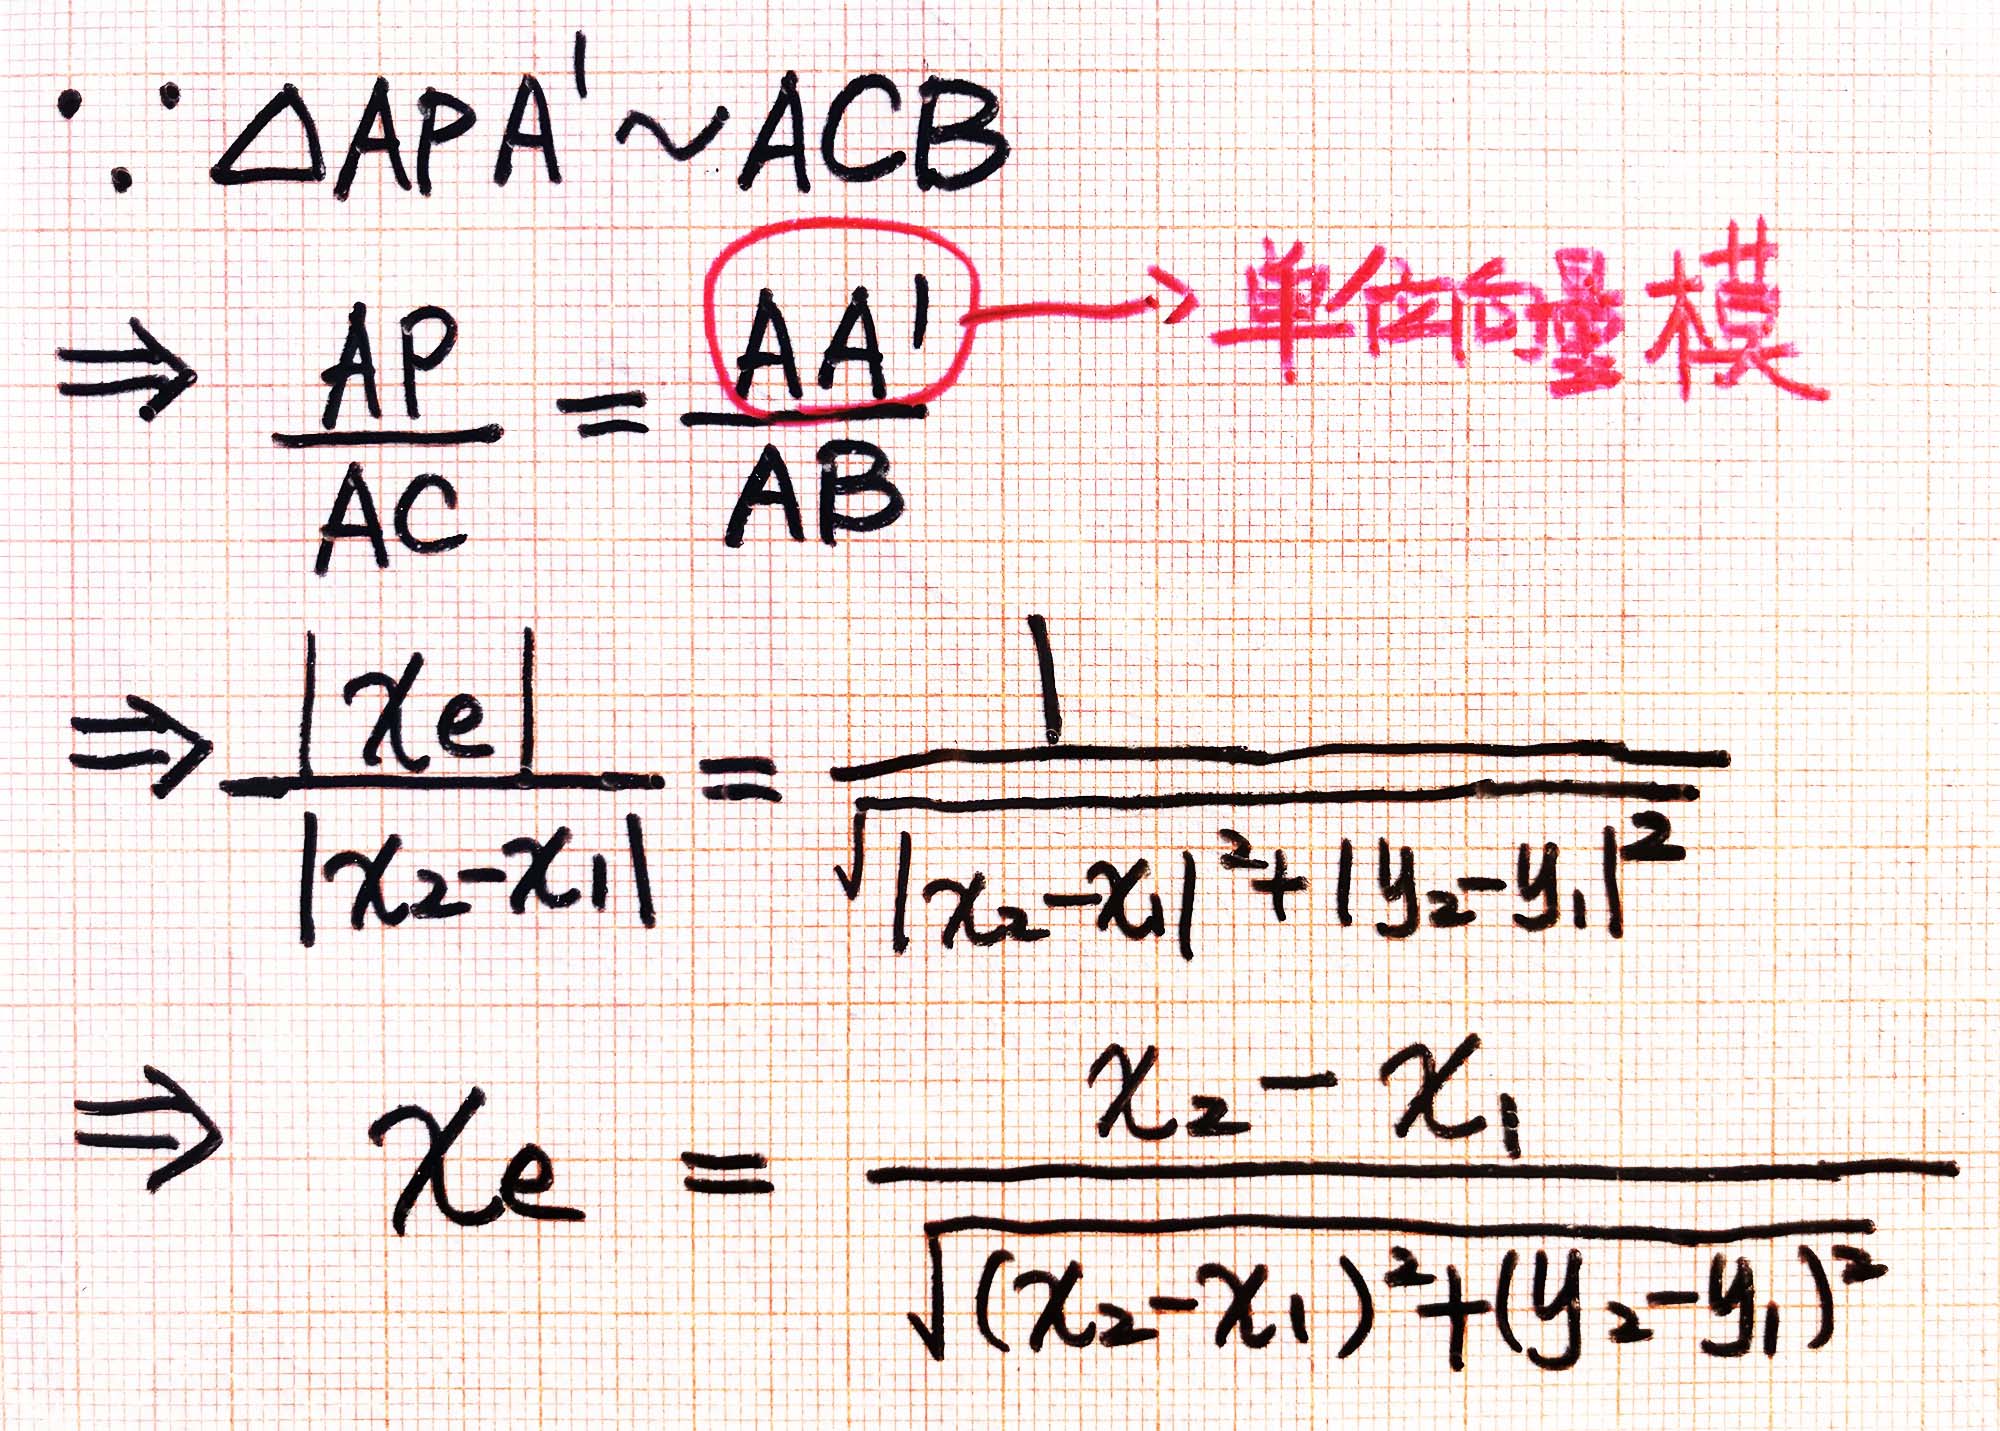 ∵ △APA' ~ ACB
⇒ AP/AC = AA'/AB → 单位向量模
⇒ |xe|/|x₂-x₁| = 1/√(|x₂-x₁|²+|y₂-y₁|²)
⇒ xe = (x₂-x₁)/√((x₂-x₁)²+(y₂-y₁)²)